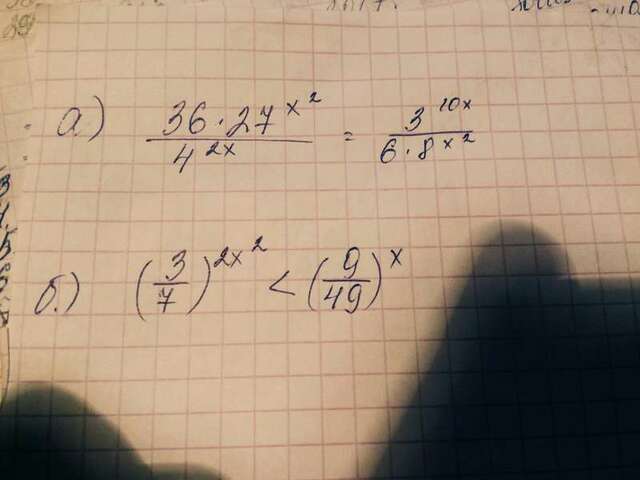 а) \frac{36 \cdot 27^{x^2}}{4^{2x}} = \frac{3^{10x}}{6 \cdot 8^{x^2}}
б.) \left(\frac{3}{7}\right)^{2x^2} < \left(\frac{9}{49}\right)^x